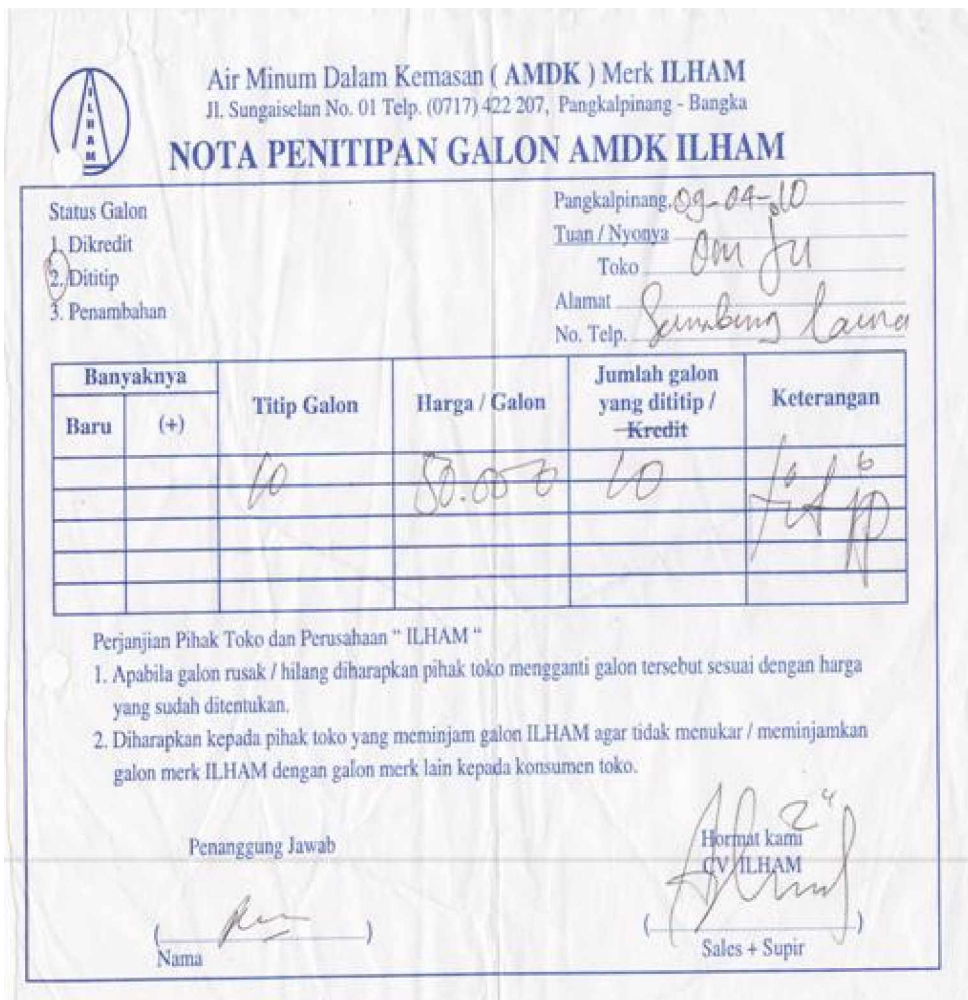 ILHAM
Air Minum Dalam Kemasan ( AMDK ) Merk ILHAM
Jl. Sungaiselan No. 01 Telp. (0717) 422 207, Pangkalpinang - Bangka
NOTA PENITIPAN GALON AMDK ILHAM
Status Galon
1. Dikredit
2. Dititip
3. Penambahan
Pangkalpinang, 09-04-10
Tuan / Nyonya
Toko Om Ju
Alamat
No. Telp.
Banyaknya
Baru (+) Titip Galon Harga / Galon Jumlah galon yang dititip / Kredit Keterangan
10 50.000 10
Perjanjian Pihak Toko dan Perusahaan “ ILHAM “
1. Apabila galon rusak / hilang diharapkan pihak toko mengganti galon tersebut sesuai dengan harga
yang sudah ditentukan.
2. Diharapkan kepada pihak toko yang meminjam galon ILHAM agar tidak menukar / meminjamkan
galon merk ILHAM dengan galon merk lain kepada konsumen toko.
Penanggung Jawab
Hormat kami
CV ILHAM
( )
Nama
( )
Sales + Supir